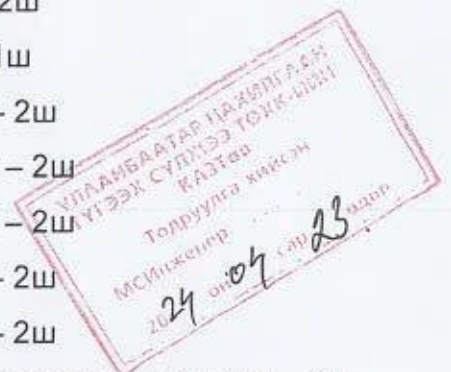 2ш
1ш
- 2ш
– 2ш
– 2ш
- 2ш
- 2ш
УЛААНБААТАР ЦАХИЛГААН
ТҮГЭЭХ СҮЛЖЭЭ ТӨХК-ИЙН
КАЗТөв
Тодруулга хийсэн
МСИнженер
2024 он 04 сар 23 өдөр